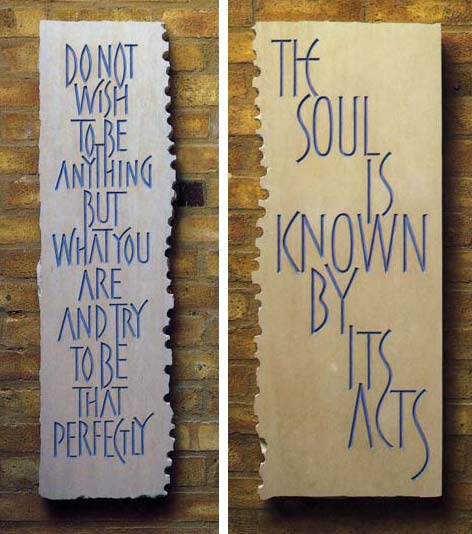 DO NOT
WISH
TO BE
ANYTHING
BUT
WHAT YOU
ARE
AND TRY
TO BE
THAT
PERFECTLY
THE
SOUL
IS
KNOWN
BY
ITS
ACTS